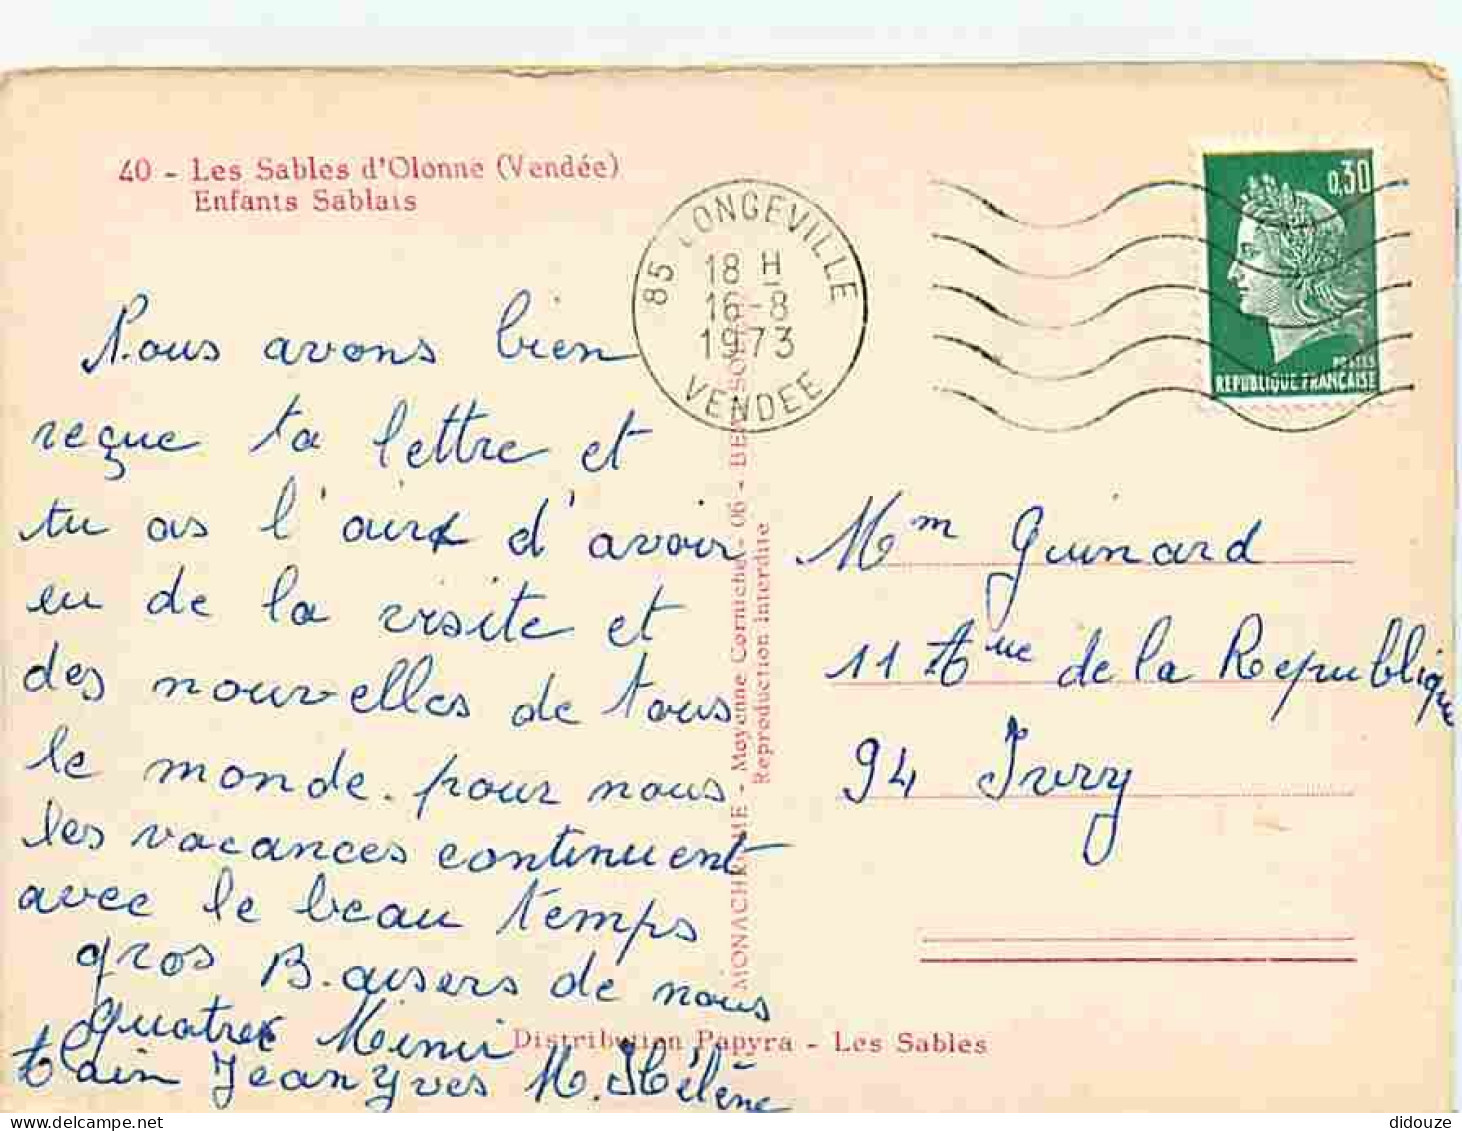 40 - Les Sables d'Olonne (Vendée)
Enfants Sablais
85 LONGEVILLE
18 H
16-8
1973
VENDEE
0,30
POSTES
REPUBLIQUE FRANCAISE
Nous avons bien
reçue ta lettre et
tu as l'air d'avoir
eu de la visite et
des nouvelles de tous
le monde. pour nous
les vacances continuent
avec le beau temps
gros Baisers de nous
quatre Mimi
Alain Jean Yves M. Hélène
MONACHROME - Moyenne Corniche - 06 - BEAUSOLEIL
Reproduction interdite
Mm Guinard
11 Aue de la Republique
94 Ivry
Distribution Papyra - Les Sables
didouze